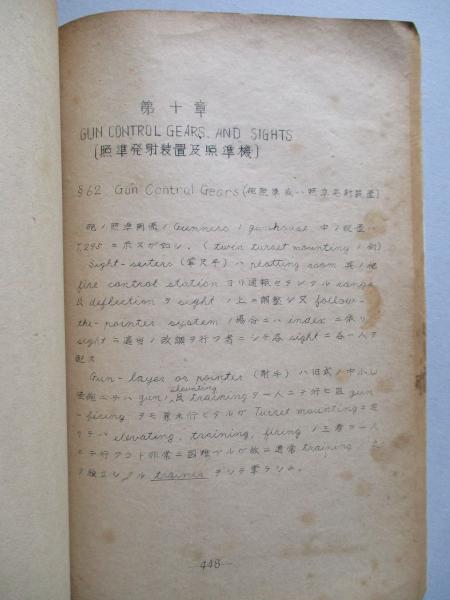 第十章
GUN CONTROL GEARS AND SIGHTS
(照準発射装置及照準機)
§62. Gun Control Gears (砲照準或ハ照準発射装置)
砲ノ照準関係ノ Gunners ノ gunhouse 中ノ配置ハ
7,295 ニ示スガ如シ. (twin turret mounting ノ例)
Sight-setters (掌尺手) ハ plotting room 其ノ他
fire control station ヨリ通報セラレタル range
及 deflection ヲ sight ノ上ニ調整シ又 follow-
the-pointer system ノ場合ニハ index ニ依リ
sight ニ適当ノ改調ヲ行フ者ニシテ各 sight ニ各一人ヲ
配ス
Gun-layer or pointer (射手) ハ旧式ノ中小口
径砲ニテハ gun ノ elevating 及 training ヲ一人ニテ行ヒ且 gun
-firing ヲモ兼ネ行ヒタルガ Turret mounting ニ
テハ elevating, training, firing ノ三者ヲ一人
ニテ行フコト非常ニ困難ナルガ故ニ通常 training
ヲ独立シタル trainer ヲシテ掌ラシム.
—448—